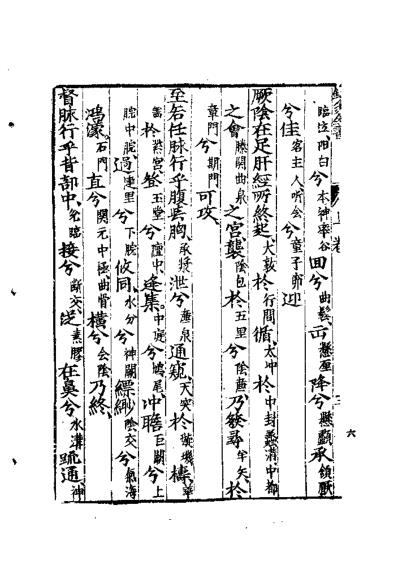 臨泣陽白兮本神率谷回兮曲鬢而懸厘降兮懸顱承頷厭
兮佳客主人听会兮童子郄迎
厥陰在足肝經所終起大敦於行間循太冲於中封蠡溝中都
之會膝關曲泉之宫襲陰包於五里兮陰廉乃発尋羊矢於
章門兮期門可攻
至若任脉行乎腹與胸承漿泄兮廉泉通窺天突於璇璣捿華
盖於紫宫登玉堂兮膻中逢集中庭兮鳩尾冲瞻巨闕兮上
脘中脘過建里兮下脘攸同水分兮神闕縹緲陰交兮氣海
鴻濛石門直兮関元中極曲骨横兮会陰乃終
督脉行乎背部中兌端接兮齗交従素髎在鼻兮水溝踈通神
六